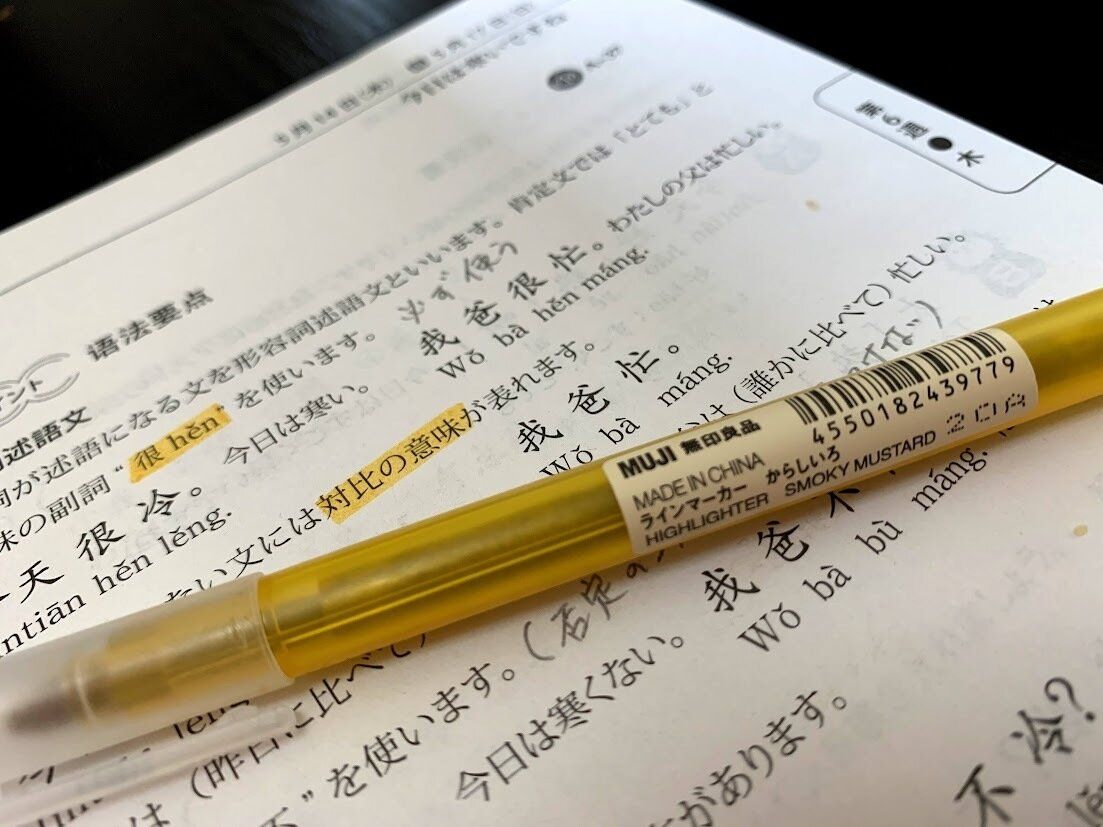 第6週●木
语法要点
述語文
詞が述語になる文を形容詞述語文といいます。肯定文では「とても」と
味の副詞"很 hěn"を使います。必ず使う
天很冷。 今日は寒い。 我爸很忙。わたしの父は忙しい。
ntiān hěn lěng. Wǒ bà hěn máng.
ない文には対比の意味が表れます。
我爸忙。
Wǒ bà máng.
lěng. は(誰かに比べて)忙しい。
は(昨日に比べて)
不"を使います。(否定の
今日は寒くない。 我爸不
Wǒ bà bù máng.
があります。
不冷?
MUJI 無印良品
MADE IN CHINA
ラインマーカー からしいろ
HIGHLIGHTER SMOKY MUSTARD
4550182439779